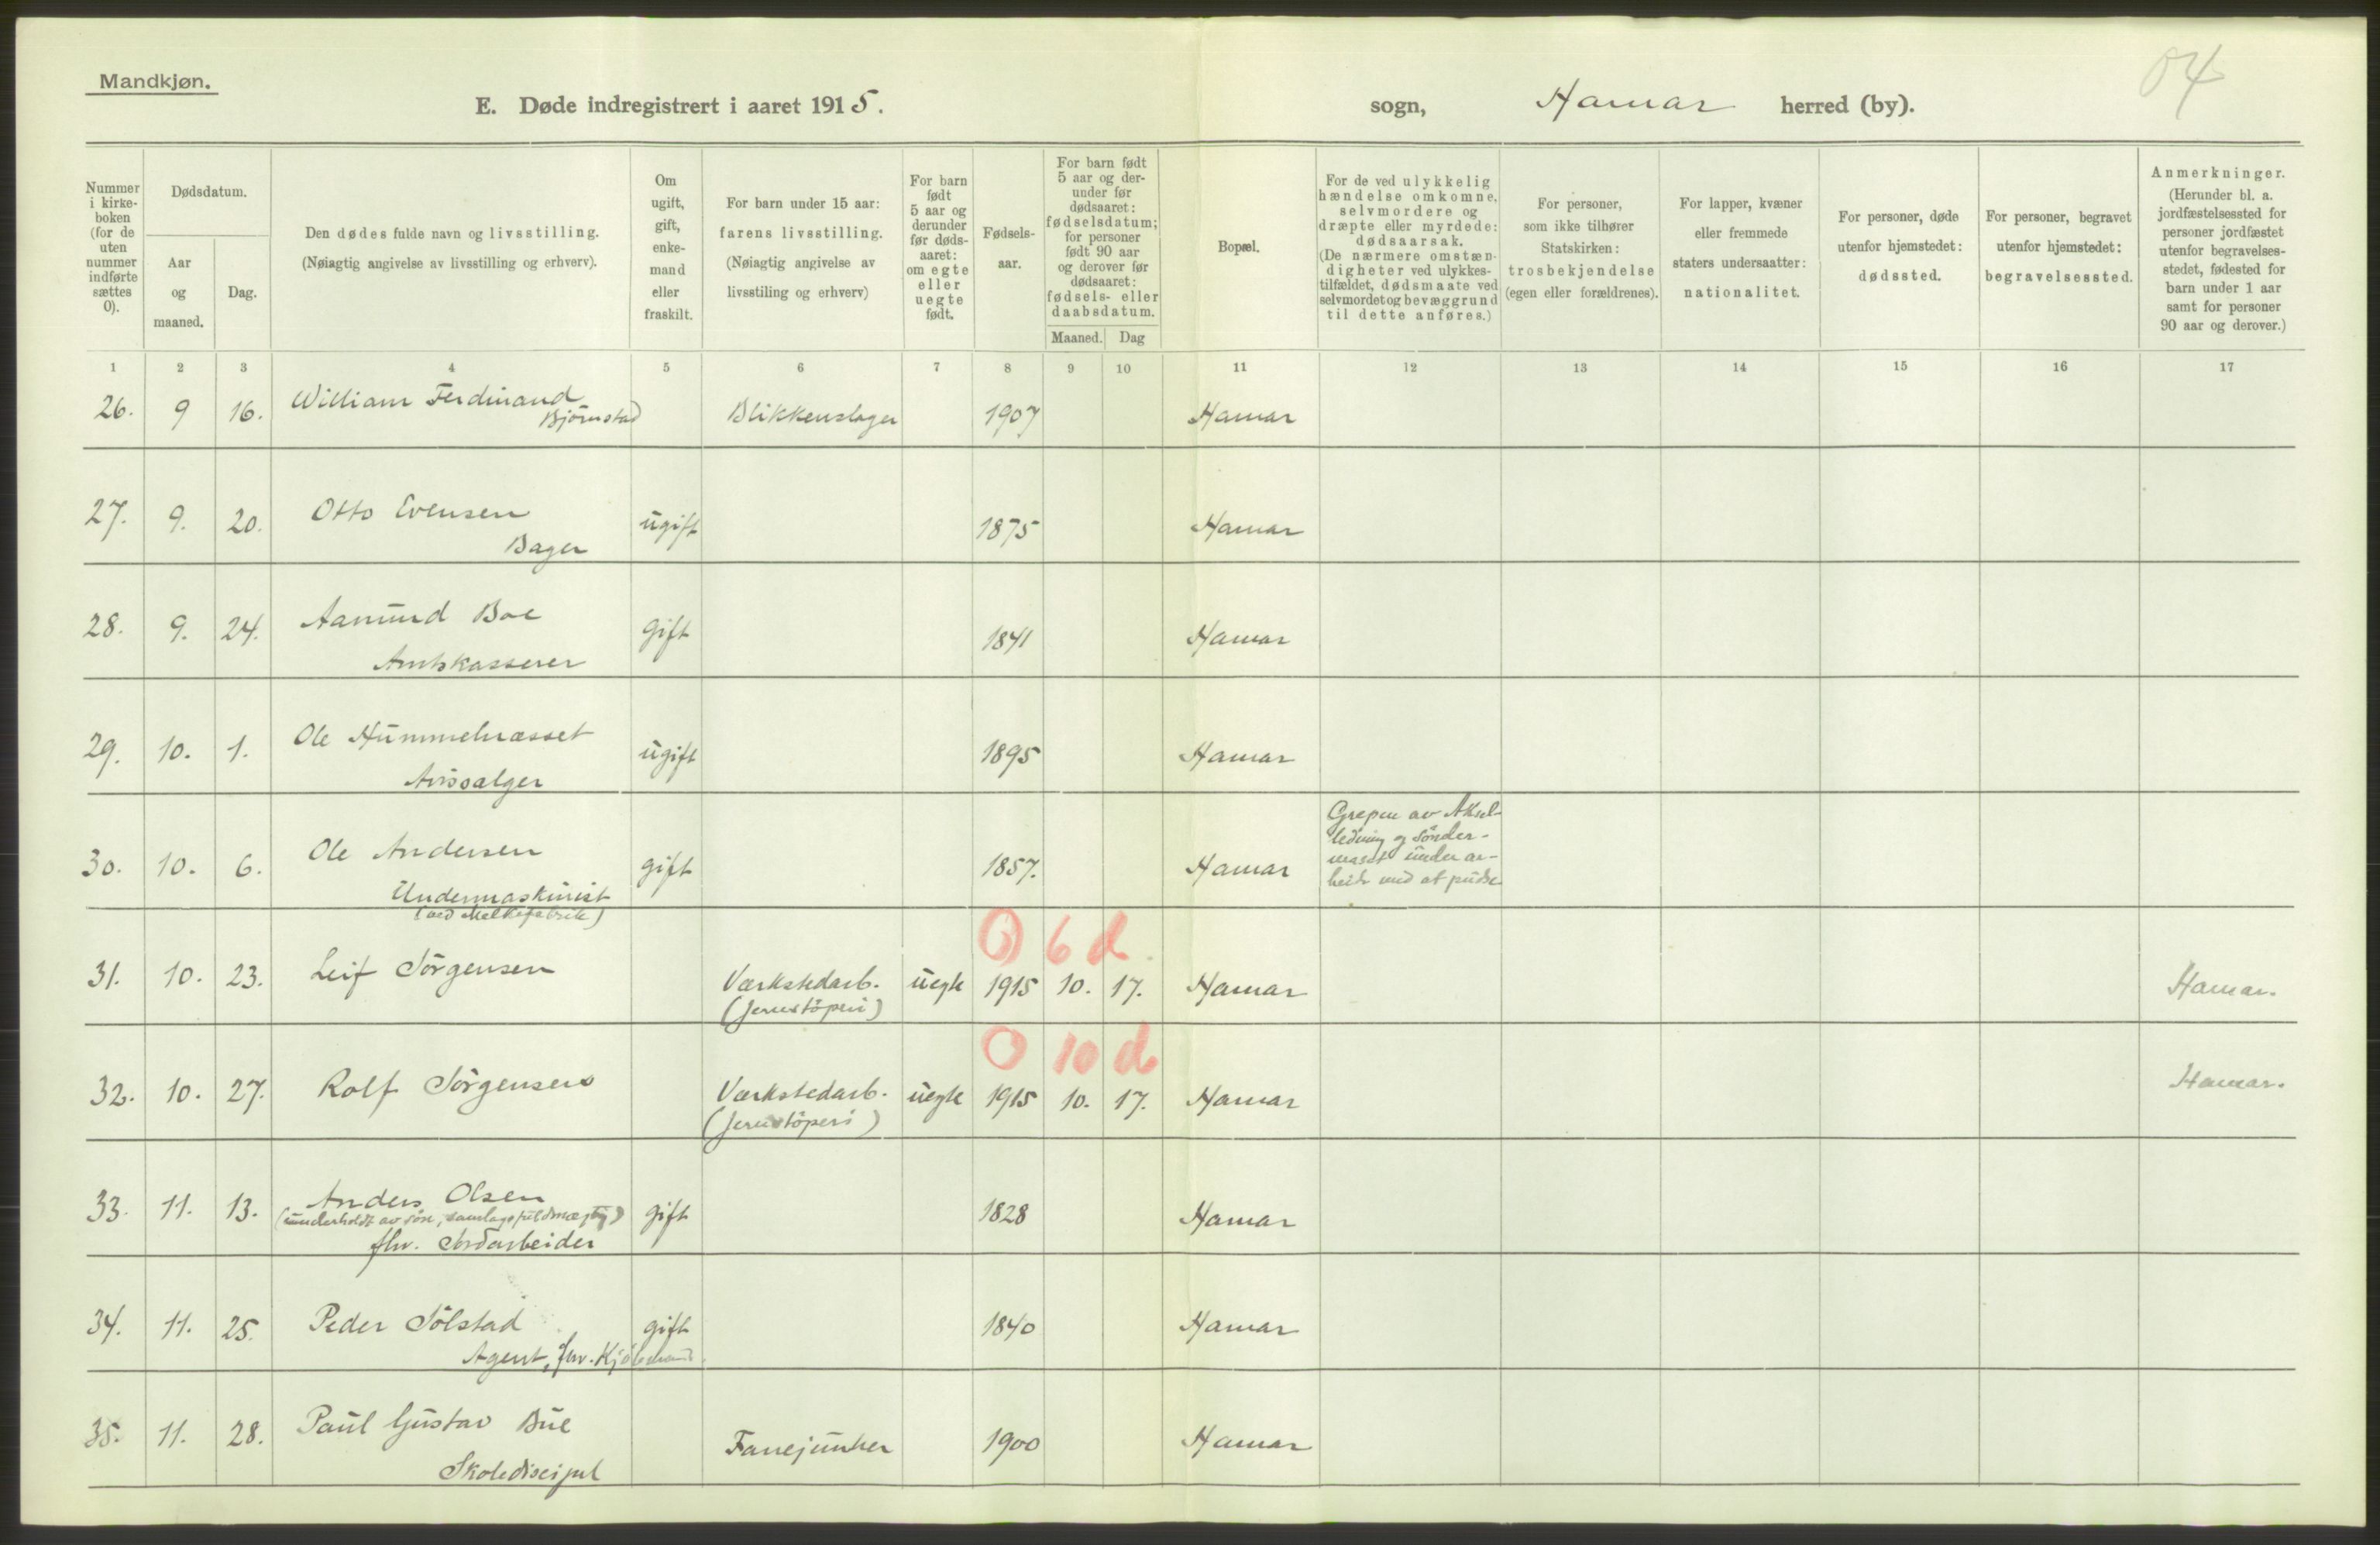 04
Mandkjøn.
E. Døde indregistrert i aaret 1915. sogn, Hamar herred (by).
Nummer i kirke-boken (for de uten nummer indførte sættes 0).
Dødsdatum.
Aar og maaned.
Dag.
Den dødes fulde navn og livsstilling.
(Nøiagtig angivelse av livsstilling og erhverv).
Om ugift, gift, enke-mand eller fraskilt.
For barn under 15 aar: farens livsstilling.
(Nøiagtig angivelse av livsstiling og erhverv)
For barn født 5 aar og derunder før døds-aaret: om egte eller uegte født.
Fødsels-aar.
For barn født 5 aar og der-under før dødsaaret: fødselsdatum; for personer født 90 aar og derover før dødsaaret: fødsels- eller daabsdatum.
Maaned. Dag
Bopæl.
For de ved ulykkelig hændelse omkomne, selvmordere og dræpte eller myrdede: dødsaarsak.
(De nærmere omstæn-digheter ved ulykkes-tilfældet, dødsmaate ved selvmordet og bevæggrund til dette anføres.)
For personer, som ikke tilhører Statskirken: trosbekjendelse (egen eller forældrenes).
For lapper, kvæner eller fremmede staters undersaatter: nationalitet.
For personer, døde utenfor hjemstedet: dødssted.
For personer, begravet utenfor hjemstedet: begravelsessted.
Anmerkninger.
(Herunder bl. a. jordfæstelsessted for personer jordfæstet utenfor begravelses-stedet, fødested for barn under 1 aar samt for personer 90 aar og derover.)
1 2 3 4 5 6 7 8 9 10 11 12 13 14 15 16 17
26. 9 16. William Ferdinand Blikkenslager 1907 Hamar
Bjørnstad
27. 9. 20. Otto Evensen ugift 1875 Hamar
Bager
28. 9. 24. Aamund Boe gift 1841 Hamar
Amtskasserer
29. 10. 1. Ole Hummelnæsset ugift 1895 Hamar
Avissælger
30. 10. 6. Ole Andersen gift 1857. Hamar
Undermaskinist
(ved Melkefabrik)
Grepen av Aksel-
ledning og sönder-
mast under ar-
beide med at pudse
0 6 d
31. 10. 23. Leif Jörgensen Værkstedarb. uegte 1915 10. 17. Hamar Hamar.
(Jernstöperi)
0 10 d
32. 10. 27. Rolf Jörgensen Værkstedarb. uegte 1915 10. 17. Hamar Hamar.
(Jernstöperi)
33. 11. 13. Anders Olsen gift 1828 Hamar
(underholdt av sön, samlagsfuldmægtig)
fhv. Jordarbeider
34. 11. 25. Peder Sölstad gift 1840 Hamar
Agent, fhv. Kjöbmand.
35. 11. 28. Paul Gustav Bue Fanejunker 1900 Hamar
Skolediscipel